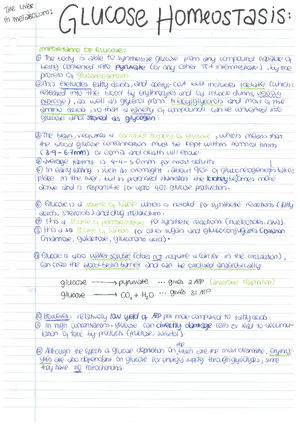 The Liver
in metabolism:
GLUCOSE HOMEOSTASIS:
IMPORTANCE OF GLUCOSE:
The body is able to synthesise glucose from any compound capable of
being converted into pyruvate (or any other TCA intermediate), by the
process of gluconeogenesis
This excludes fatty acids, and acetyl-CoA but includes lactate (which
released into the blood by erythrocytes and by muscle during
exercise), as well as glycerol from triacylglycerols and most of the
amino acids, so that a variety of compounds can be converted into
glucose and stored as glycogen
The brain requires a constant supply of glucose, which means that
the blood glucose concentration must be kept within normal limits
or coma and death will ensue
Average fasting is 4.4 - 5.0mM for most adults
In early fasting, such as overnight, about 90% of gluconeogenesis takes
place in the liver, but in prolonged the kidney becomes more
active and is responsible for up to 40% glucose production.
Glucose is a source of NADPH which is needed for synthetic reactions (fatty
acids, steroids) and drug metabolism.
It is a source of pentose sugars for synthetic reactions (nucleotides)
It is a source of carbon for other sugars and glycoconjugates
(mannose, galactose, glucuronic acid).
Glucose is also water-soluble (does not require a carrier in the circulation),
can cross the blood-brain barrier and can be oxidised anaerobically
glucose → pyruvate ... gives 2 ATP (anaerobic respiration)
glucose → CO₂ + H₂O ... gives 31 ATP
However, relatively low yield of ATP per mole compared to fatty acids
In high concentrations, glucose can directly damage cells or lead to accumu-
lation of toxic by-products
Although the effects of glucose deprivation on the brain are the most dramatic,
are also dependent on glucose for energy supply through glycolysis, since
they have no mitochondria